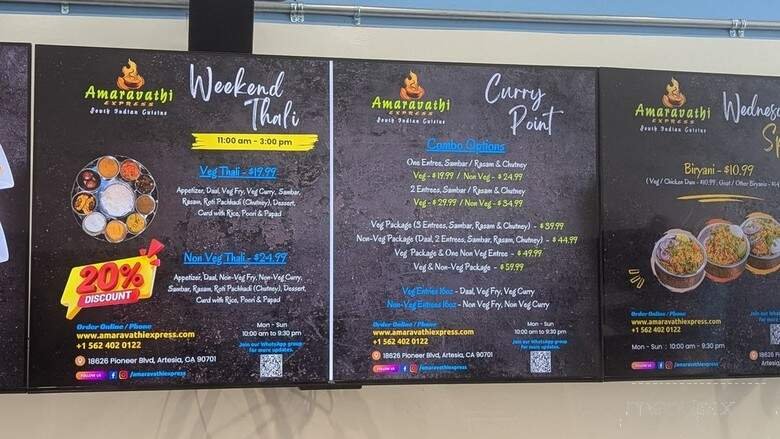 Amaravathi
EXPRESS
South Indian Cuisine
Weekend
Thali
11:00 am - 3:00 pm
Veg Thali - $19.99
Appetizer, Daal, Veg Fry, Veg Curry, Sambar,
Rasam, Roti Pachhadi (Chutney), Dessert,
Curd with Rice, Poori & Papad
Non Veg Thali - $24.99
Appetizer, Daal, Non-Veg Fry, Non-Veg Curry,
Sambar, Rasam, Roti Pachhadi (Chutney), Dessert,
Curd with Rice, Poori & Papad
20%
DISCOUNT
Order Online / Phone
www.amaravathiexpress.com
+1 562 402 0122
18626 Pioneer Blvd, Artesia, CA 90701
FOLLOW US
/amaravathiexpress
Mon - Sun
10:00 am to 9:30 pm
Join our WhatsApp group
for more updates.
Amaravathi
EXPRESS
South Indian Cuisine
Curry
Point
Combo Options
One Entree, Sambar / Rasam & Chutney
Veg - $19.99 / Non Veg - $24.99
2 Entrees, Sambar / Rasam & Chutney
Veg - $29.99 / Non Veg - $34.99
Veg Package (3 Entrees, Sambar, Rasam & Chutney) - $39.99
Non-Veg Package (Daal, 2 Entrees, Sambar, Rasam, Chutney) - $44.99
Veg Package & One Non Veg Entree - $49.99
Veg & Non-Veg Package - $59.99
Veg Entrees 16oz - Daal, Veg Fry, Veg Curry
Non-Veg Entrees 16oz - Non Veg Fry, Non Veg Curry
Order Online / Phone
www.amaravathiexpress.com
+1 562 402 0122
18626 Pioneer Blvd, Artesia, CA 90701
FOLLOW US
/amaravathiexpress
Mon - Sun
10:00 am to 9:30 pm
Join our WhatsApp group
for more updates.
Amaravathi
EXPRESS
South Indian Cuisine
Biryani - $10.99
Order Online / Phone
www.amaravathiexpress.com
+1 562 402 0122
Mon - Sun : 10:00 am - 9:30 pm
FOLLOW US
/amaravathiexpress